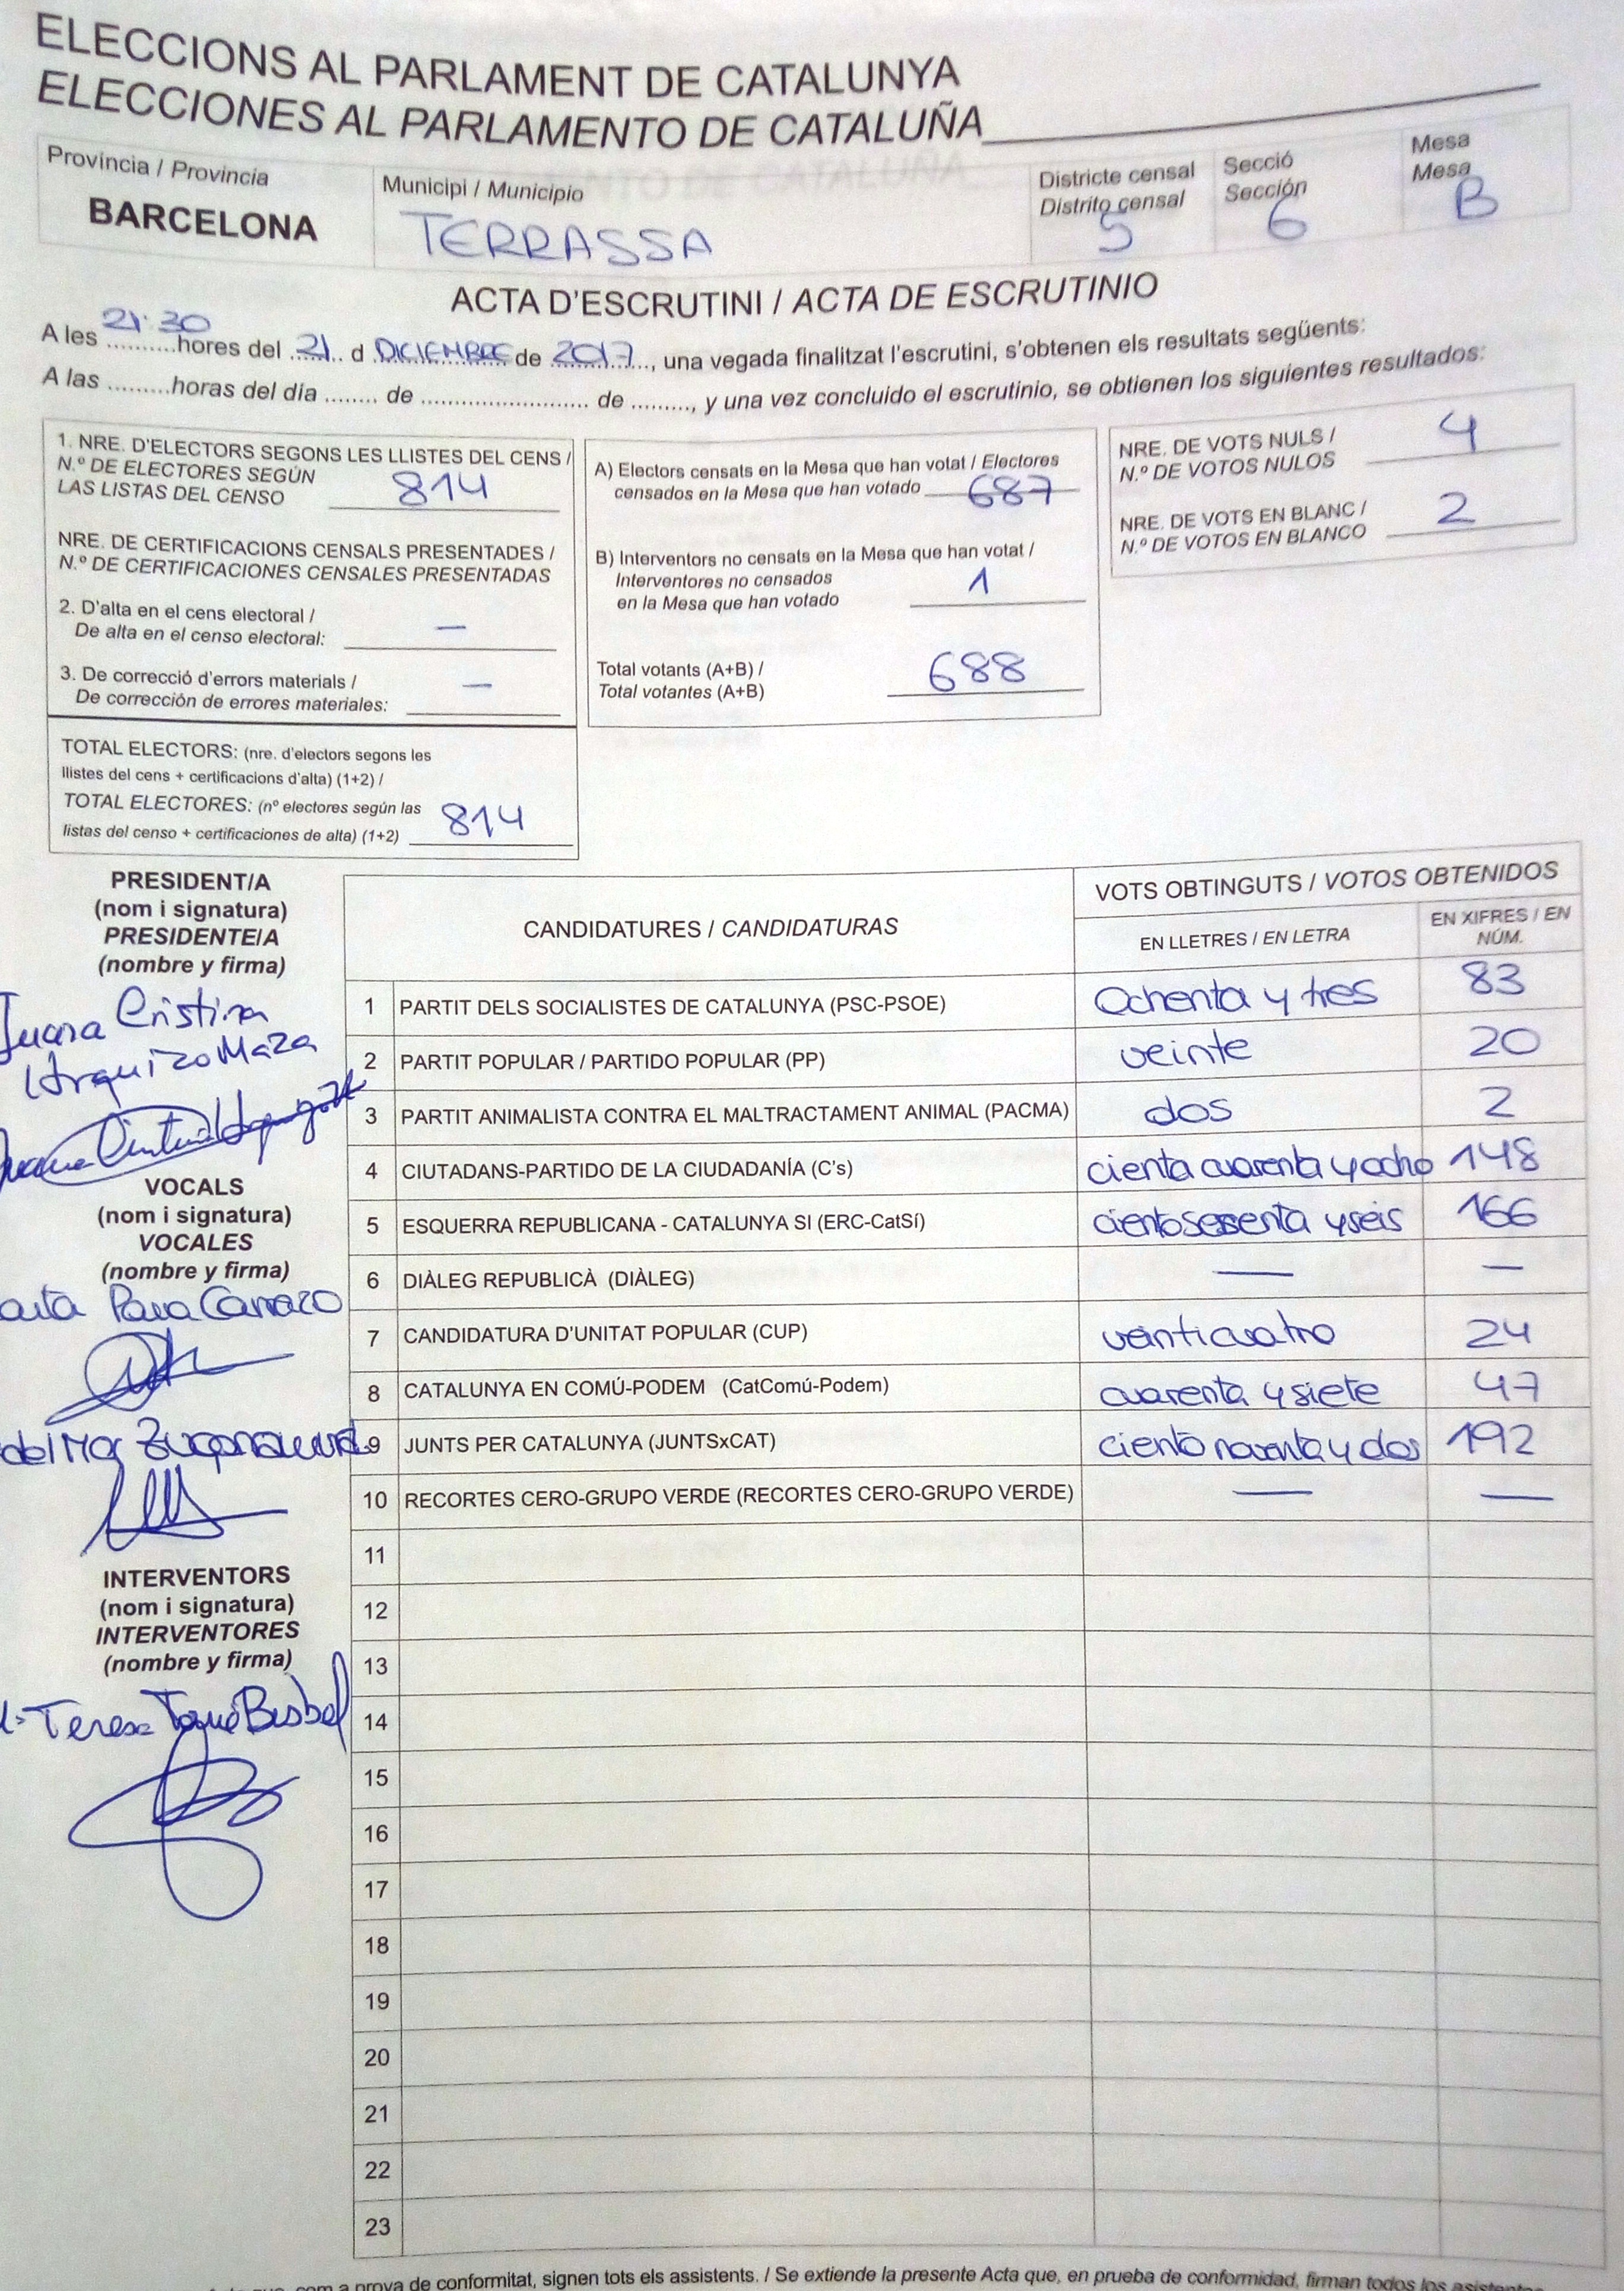 ELECCIONS AL PARLAMENT DE CATALUNYA
ELECCIONES AL PARLAMENTO DE CATALUÑA
Província / Provincia
BARCELONA
Municipi / Municipio
TERRASSA
Districte censal
Distrito censal
5
Secció
Sección
6
Mesa
Mesa
B
ACTA D'ESCRUTINI / ACTA DE ESCRUTINIO
A les 21:30 hores del 21 d DICIEMBRE de 2017, una vegada finalitzat l'escrutini, s'obtenen els resultats següents:
A las .........horas del día ........ de ............................ de ........., y una vez concluido el escrutinio, se obtienen los siguientes resultados:
1. NRE. D'ELECTORS SEGONS LES LLISTES DEL CENS /
N.º DE ELECTORES SEGÚN
LAS LISTAS DEL CENSO 814
NRE. DE CERTIFICACIONS CENSALS PRESENTADES /
N.º DE CERTIFICACIONES CENSALES PRESENTADAS
2. D'alta en el cens electoral /
De alta en el censo electoral: —
3. De correcció d'errors materials /
De corrección de errores materiales: —
TOTAL ELECTORS: (nre. d'electors segons les
llistes del cens + certificacions d'alta) (1+2) /
TOTAL ELECTORES: (nº electores según las
listas del censo + certificaciones de alta) (1+2) 814
A) Electors censats en la Mesa que han votat / Electores
censados en la Mesa que han votado 687
B) Interventors no censats en la Mesa que han votat /
Interventores no censados
en la Mesa que han votado 1
Total votants (A+B) /
Total votantes (A+B) 688
NRE. DE VOTS NULS /
N.º DE VOTOS NULOS 4
NRE. DE VOTS EN BLANC /
N.º DE VOTOS EN BLANCO 2
PRESIDENT/A
(nom i signatura)
PRESIDENTE/A
(nombre y firma)
Juana Cristina
Urquizo Maza
VOCALS
(nom i signatura)
VOCALES
(nombre y firma)
del Mar
INTERVENTORS
(nom i signatura)
INTERVENTORES
(nombre y firma)
Teresa
CANDIDATURES / CANDIDATURAS
VOTS OBTINGUTS / VOTOS OBTENIDOS
EN LLETRES / EN LETRA
EN XIFRES / EN
NÚM.
1 PARTIT DELS SOCIALISTES DE CATALUNYA (PSC-PSOE) Ochenta y tres 83
2 PARTIT POPULAR / PARTIDO POPULAR (PP) veinte 20
3 PARTIT ANIMALISTA CONTRA EL MALTRACTAMENT ANIMAL (PACMA) dos 2
4 CIUTADANS-PARTIDO DE LA CIUDADANÍA (C's) cienta cuarenta y ocho 148
5 ESQUERRA REPUBLICANA - CATALUNYA SI (ERC-CatSí) ciento sesenta y seis 166
6 DIÀLEG REPUBLICÀ (DIÀLEG) — —
7 CANDIDATURA D'UNITAT POPULAR (CUP) veinticuatro 24
8 CATALUNYA EN COMÚ-PODEM (CatComú-Podem) cuarenta y siete 47
9 JUNTS PER CATALUNYA (JUNTSxCAT) ciento noventa y dos 192
10 RECORTES CERO-GRUPO VERDE (RECORTES CERO-GRUPO VERDE) — —
11
12
13
14
15
16
17
18
19
20
21
22
23
com a prova de conformitat, signen tots els assistents. / Se extiende la presente Acta que, en prueba de conformidad, firman todos los